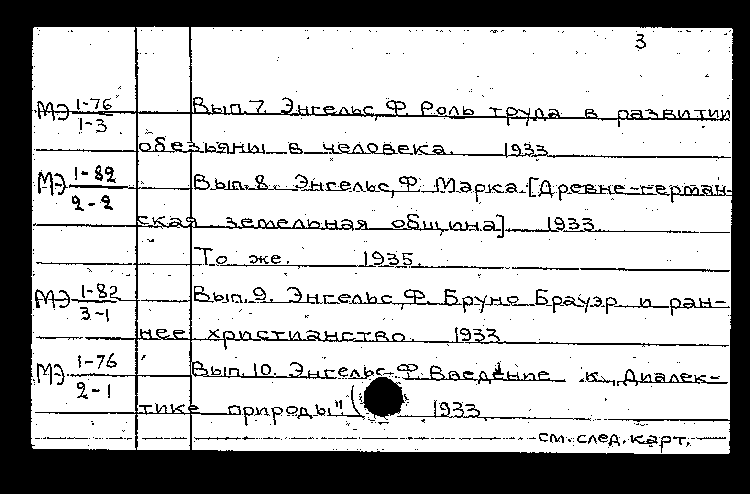 3
МЭ 1-76 Вып.7. Энгельс, Ф. Роль труда в развитии
1-3
обезьяны в человека. 1933
МЭ 1-82 Вып.8. Энгельс, Ф. Марка [Древне-герман-
2-2
ская земельная община]. 1933.
То же. 1935.
МЭ 1-82 Вып.9. Энгельс, Ф. Бруно Брауэр и ран-
3-1
нее христианство. 1933
МЭ 1-76 Вып.10. Энгельс Ф. Введение к „Диалек-
2-1
тике природы" ( 1933
см. след. карт.